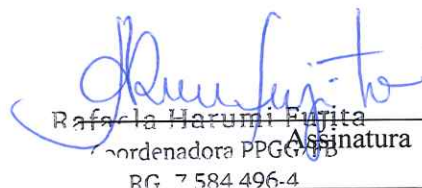 Rafaela Harumi Fujita
Assinatura
Coordenadora PPGG/PB
RG 7.584.496-4